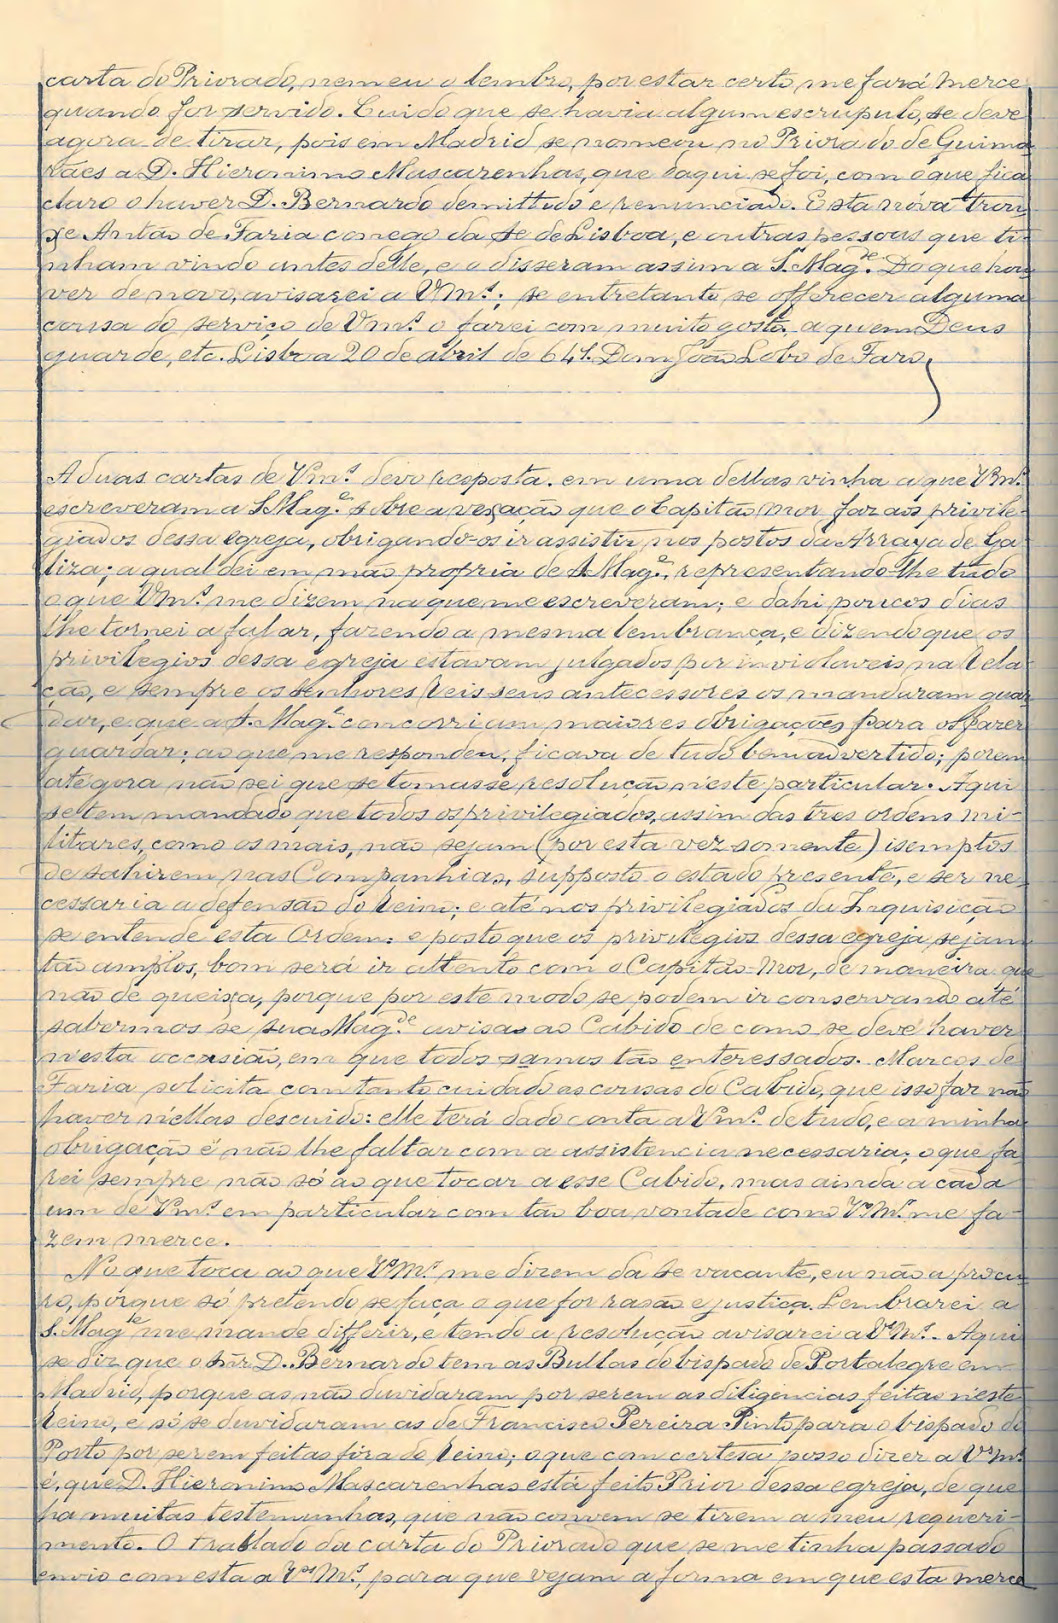 carta do Priorado, nem eu o lembro, por estar certo, me fará merce
quando for servido. Cuido que se havia algum escrupulo, se deve
agora de tirar, pois em Madrid se nomeou no Priorado de Guima
rães a D. Hieronimo Mascarenhas, que daqui se foi, com o que fica
claro o haver D. Bernardo demittudo e renunciado. Esta nóva trou
xe Antão de Faria conego da Se de Lisboa, e outras pessoas que ti-
nham vindo antes delle, e o disseram assim a S. Mag.de Do que hou
ver de novo, avisarei a VMs.; se entretanto se offerecer alguma
cousa do serviço de Vms. o farei com muito gosto. a quem Deus
guarde, etc. Lisboa 20 de abril de 641. Dom João Lobo de Faro
A duas cartas de Vms. devo resposta. em uma dellas vinha a que VMs.
escreveram a S. Mag.e sobre a vexação que o Capitão mor faz aos privile-
giados dessa egreja, obrigando-os ir assistir nos postos da Arraya de Ga
liza; a qual dei em mão propria de S. Mag.e, representando-lhe tudo
o que VMs. me dizem na que me escreveram; e dahi poucos dias
lhe tornei a falar, fazendo a mesma lembrança, e dizendo que os
privilegios dessa egreja estavam julgados por inviolaveis na Rela
ção, e sempre os senhores Reis seus antecessores os mandaram guar
dar, e que a S. Mag.e concorriam maiores obrigações para os fazer
guardar; ao que me respondeu, ficava de tudo bem advertido; porem
atégora não sei que se tomasse resolução n'este particular. Aqui
se tem mandado que todos os privilegiados, assim das tres ordens mi-
litares, como os mais, não sejam (por esta vez somente) isemptos
de sahirem nas Companhias, supposto o estado presente, e ser ne-
cessaria a defensão do Reino; e até nos privilegiados da Inquisição
se entende esta Ordem: e posto que os privilegios dessa egreja sejam
tão amplos, bom será ir attento com o Capitão-Mor, de maneira que
não de queixa, porque por este modo se podem ir conservando até
sabermos se sua Mag.de avisa ao Cabido de como se deve haver
n'esta occasião, em que todos samos tão enteressados. Marcos de
Faria solicita com tanto cuidado as cousas do Cabido, que isso faz não
haver n'ellas descuido: elle terá dado conta a Vms. de tudo, e a minha
obrigação é não lhe faltar com a assistencia necessaria; o que fa
rei sempre não só ao que tocar a esse Cabido, mas ainda a cada
um de Vms. em particular com tão boa vontade como VsMs. me fa-
zem merce.
No que toca ao que VsMs. me dizem da Se vacante, eu não a procu
ro, pórque só pretendo se faça o que for rasão e justiça. Lembrarei a
S. Mag.de me mande differir, e tendo a resolução avisarei a VsMs. Aqui
se diz que o snr D. Bernardo tem as Bullas do bispado de Portalegre em
Madrid, porque as não duvidaram por serem as diligencias feitas n'este
Reino, e só se duvidaram as de Francisco Pereira Pinto para o bispado do
Porto por serem feitas fóra do Reino; o que com certesa posso dizer a VsMs.
é, que D. Hieronimo Mascarenhas está feito Prior dessa egreja, de que
ha muitas testemunhas, que não convem se tirem a meu requeri-
mento. O traslado da carta do Priorado que se me tinha passado
envio com esta a VosMs., para que vejam a forma em que esta merce